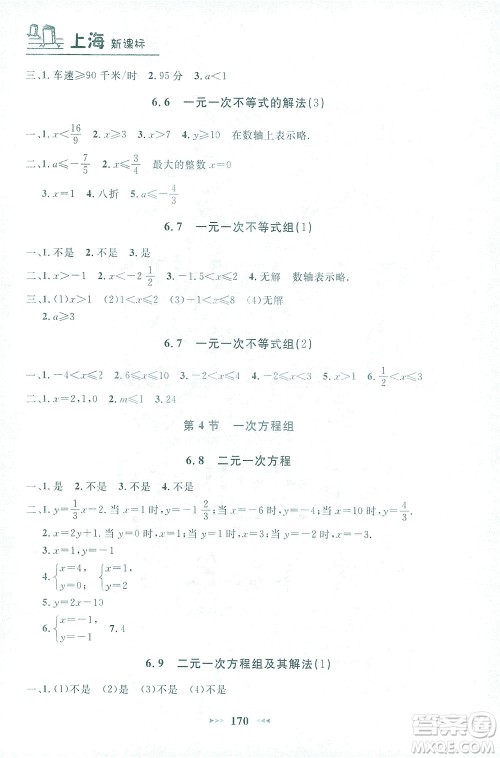 上海 新课标
三、1.车速≥90千米/时 2.95分 3.a<1
6.6 一元一次不等式的解法(3)
一、1.x<16/9 2.x≥3 3.x<1 4.y≥10 在数轴上表示略.
二、1.a≤-7/5 2.x≤3/4 最大的整数x=0
3.x=1 4.八折 *5.a≤-4/3
6.7 一元一次不等式组(1)
一、1.不是 2.不是 3.是 4.是
二、1.x>-1 2.x<-4 3.-2<x≤1/2 4.无解 数轴表示略.
三、1.(1)x>1 (2)1<x≤2 (3)x≤1 (4)无解
2.a≥3
6.7 一元一次不等式组(2)
一、1.-4<x≤2 2.6≤x<8 3.-2<x≤4 4.-5≤x<-2 5.-1<x≤4 6.1/2<x<4
二、1.x=2,1,0 2.m≤4 *3.24
第4节 一次方程组
6.8 二元一次方程
一、1.是 2.不是 3.不是 4.不是
二、1.y=1/3x-2/3;当x=1时,y=-1/3;当x=0时,y=-2/3;当x=-1时,y=-1
2.x=2y+1,当y=0时,x=1;当y=1时,x=3;当y=-1时,x=-1
3.不是
4.{x=4, y=0; {x=1, y=4
5.y=2x-10
6.{x=-1, y=-1 7.4
6.9 二元一次方程组及其解法(1)
一、1.(1)不是 (2)是 (3)不是 (4)不是
170